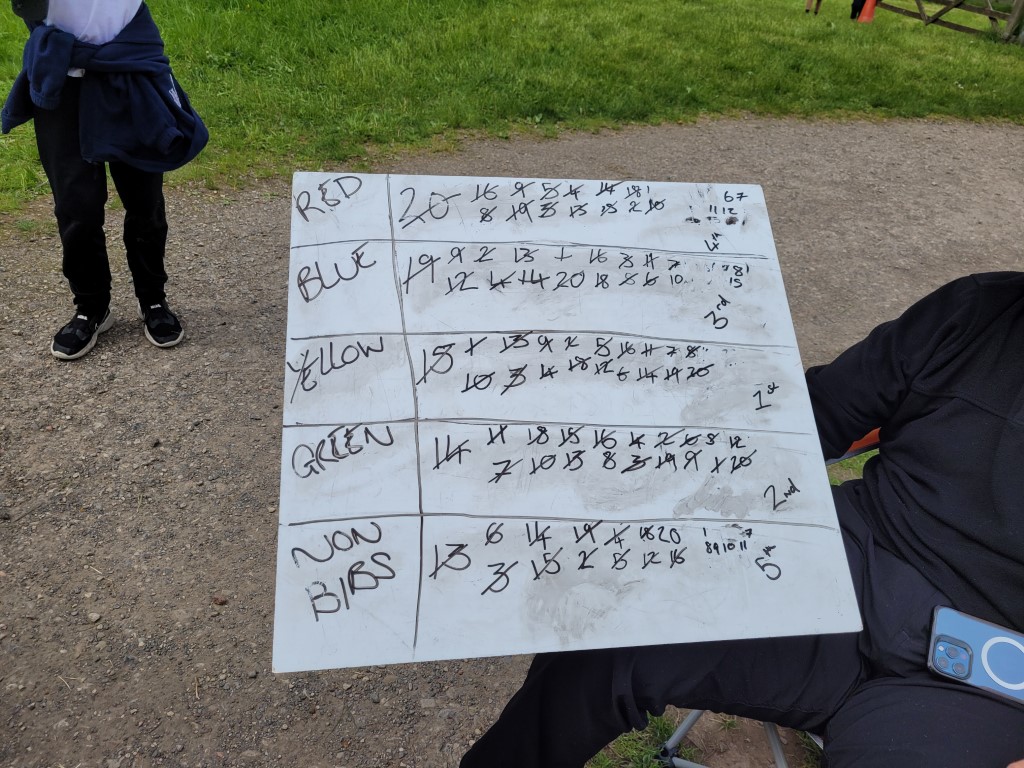 RED
20 16 9 5 4 14 18 1 6 7
8 19 3 13 15 2 10 11 12
4th
BLUE
19 9 2 13 1 16 3 11 7 8
12 4 14 20 18 5 6 10 15
3rd
YELLOW
15 1 13 9 2 5 16 11 7 8
10 3 4 18 12 6 14 19 20
1st
GREEN
14 11 18 15 16 4 2 6 8 12
7 10 13 8 3 19 9 1 20
2nd
NON
BIBS
13 6 14 19 4 18 20 1 7
3 15 2 5 12 16 8 9 10 11
5th